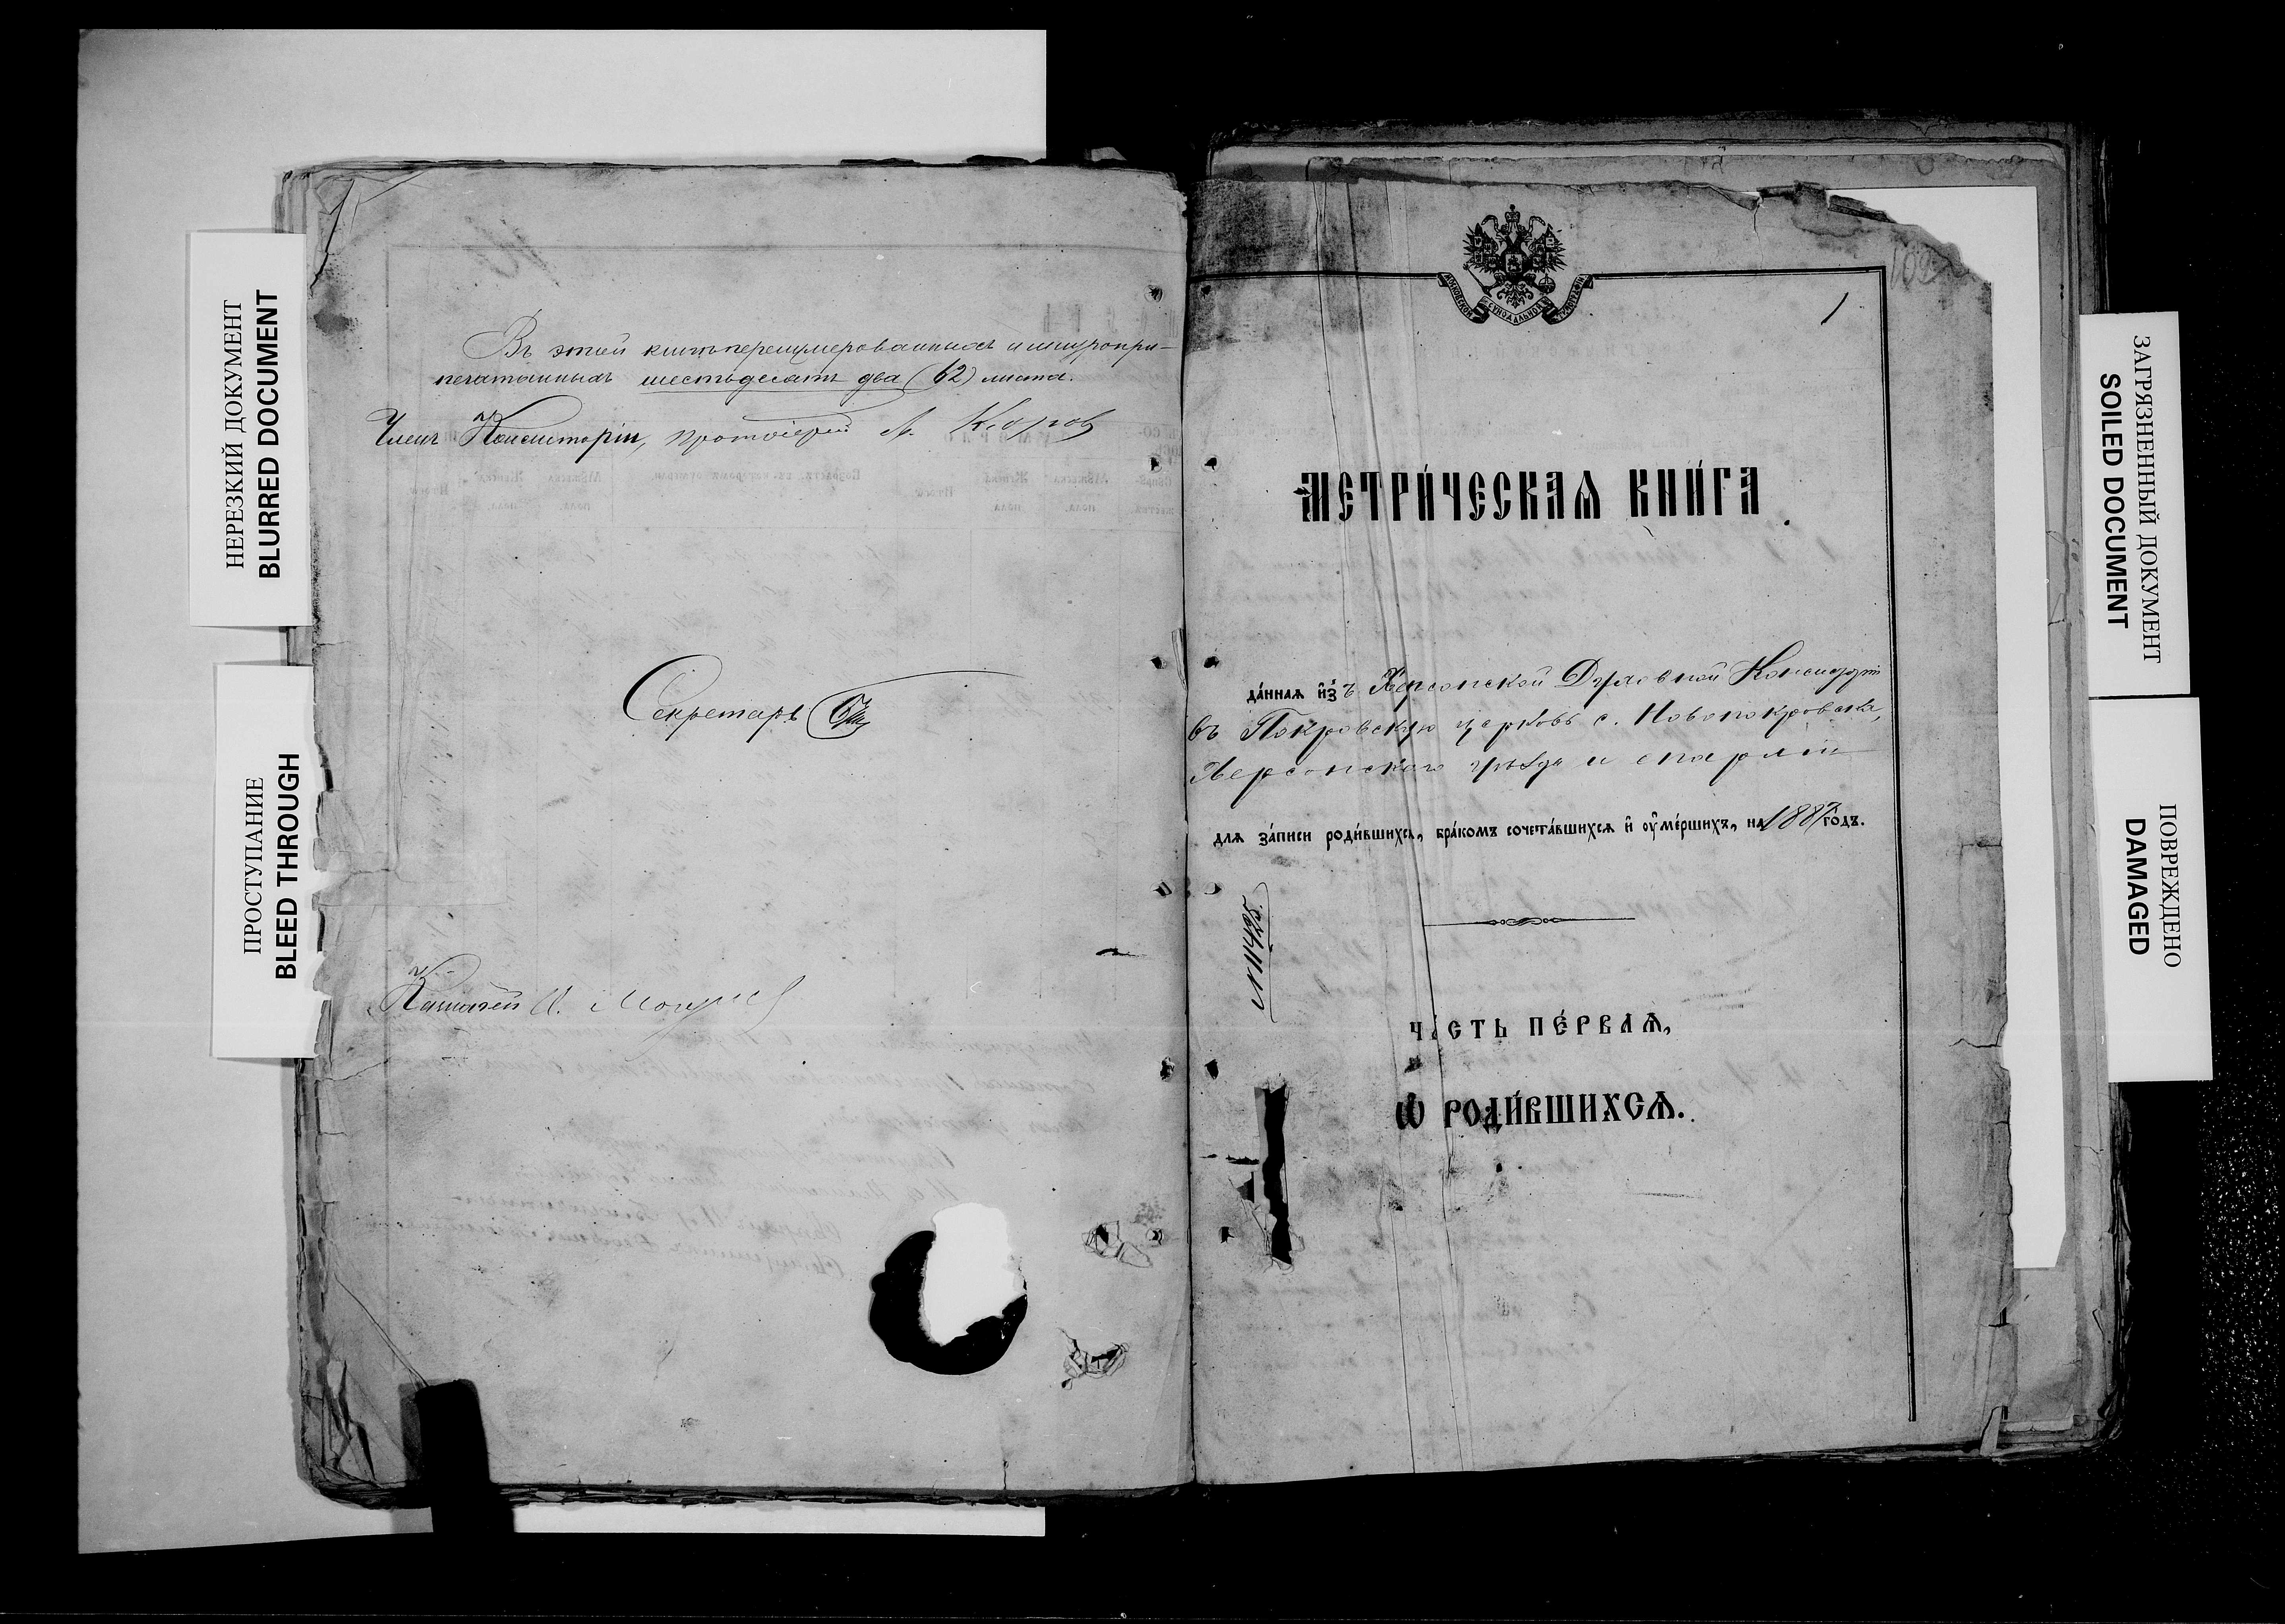 НЕРЕЗКИЙ ДОКУМЕНТ
BLURRED DOCUMENT
ПРОСТУПАНИЕ
BLEED THROUGH
Въ этой книгѣ перенумерованныхъ и шнуропри-
печатанныхъ шестьдесятъ два (62) листа.
Членъ Консисторіи, протоіерей
Секретарь
Казначей
МОСКОВСКОЙ СѴНОДАЛЬНОЙ ТИПОГРАФІИ
1
МЕТРИ́ЧЕСКАѦ КНИ́ГА
да́ннаѧ и҆зъ Херсонской Духовной Консисторіи
въ Покровскую церковь с. Новопокровска,
Херсонскаго уѣзда и епархіи
длѧ за́писи роди́вшихсѧ, бра́комъ сочета́вшихсѧ и҆ оу҆ме́ршихъ, на 1887 го́дъ.
N 11425.
ЧА́СТЬ ПЕ́РВАѦ,
Ѡ҆ РОДИ́ВШИХСѦ.
ЗАГРЯЗНЕННЫЙ ДОКУМЕНТ
SOILED DOCUMENT
ПОВРЕЖДЕНО
DAMAGED